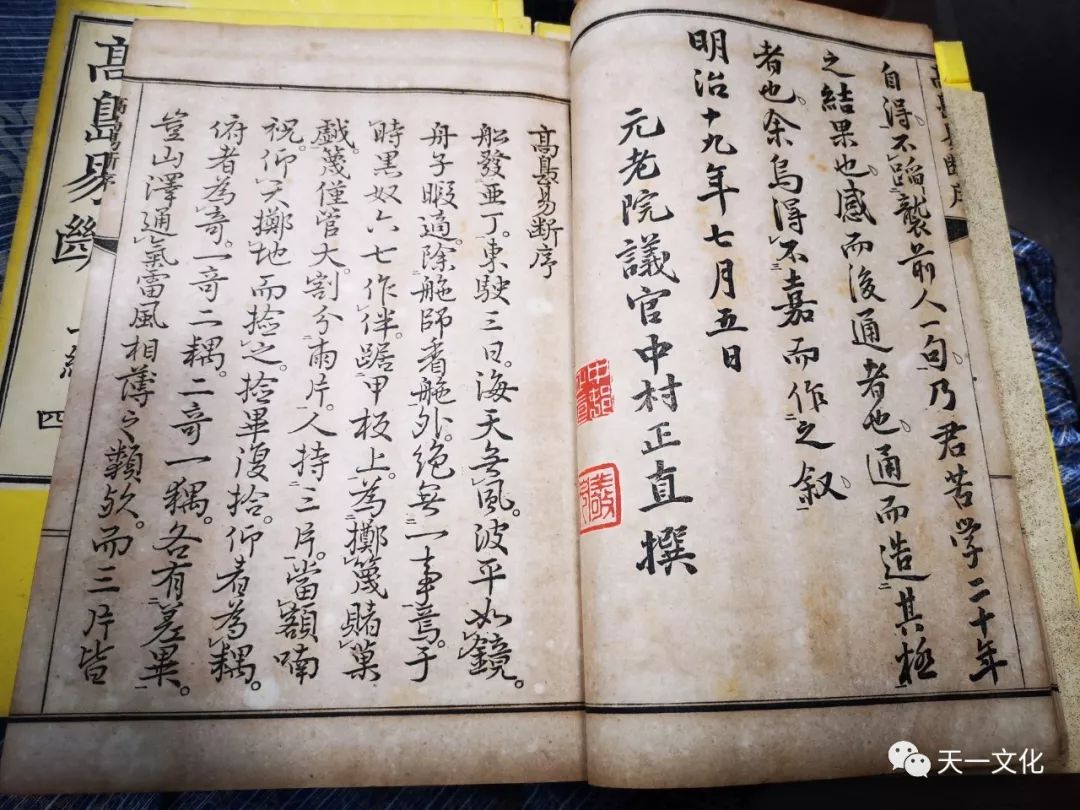 自得。不蹈襲前人一句。乃君苦学二十年
之結果也。感而後通者也。通而造其極
者也。余烏得不嘉而作之叙。
明治十九年七月五日
元老院議官中村正直撰
高島易断序
船發亜丁。東駛三日。海天無風。波平如鏡。
舟子暇適。除舵師看舵外。絶無一事焉。于
時黒奴六七作伴。踞甲板上。為擲篾賭菓
戯。篾僅管大。割分兩片。人持三片。當額喃
祝。仰天擲地而捡之。捡畢復拾。仰者為耦。
俯者為奇。一奇二耦。二奇一耦。各有差異。
豈山澤通氣雷風相薄之類欤。而三片皆
高島易斷
四
天一文化